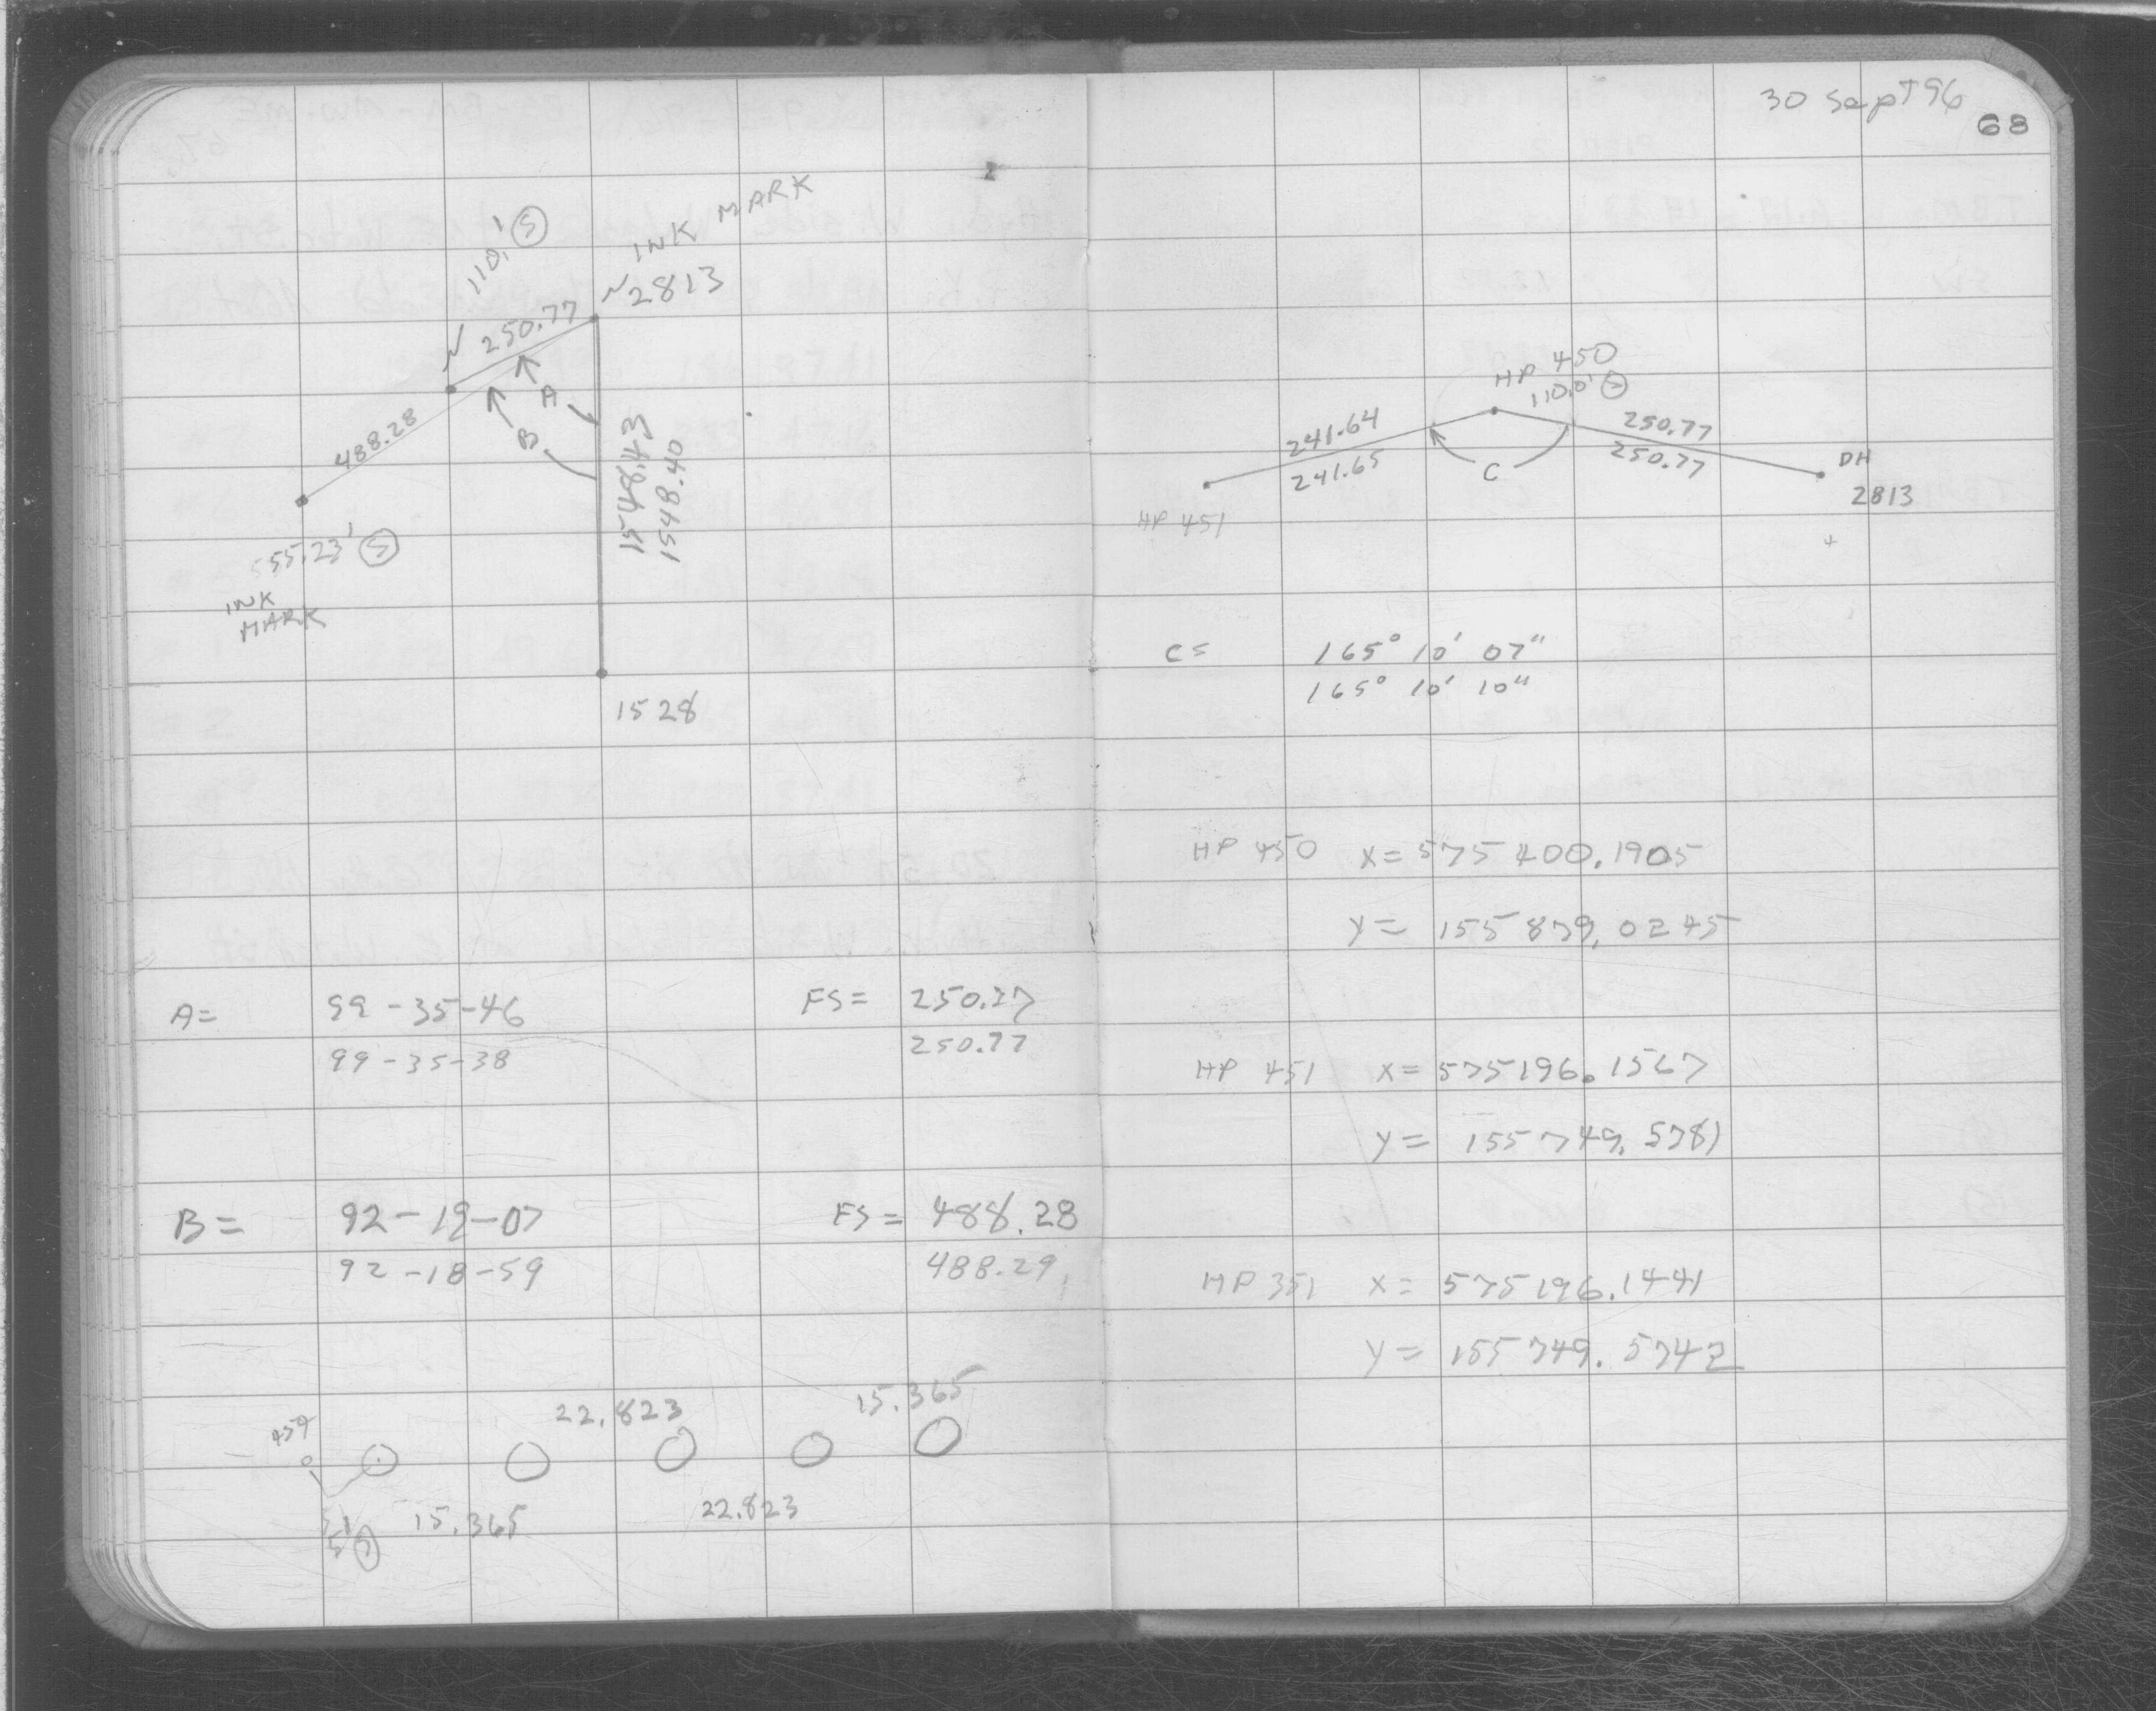 110.' S
INK MARK
N 2813
N 250.77
A
B
488.28
1548.43
1548.40
55.23' S
INK
MARK
1528
A= 99-35-46 FS= 250.77
99-35-38 250.77
B= 92-19-07 FS= 488.28
92-18-59 488.29
22.823 15.365
15.365 22.823
30 Sept 96
68
HP 450
110.0' S
241.64 250.77
241.65 C 250.77
DH
2813
HP 451
C= 165° 10' 07"
165° 10' 10"
HP 450 X= 575400.1905
Y= 155879.0245
HP 451 X= 575196.1567
Y= 155749.5781
HP 351 X= 575196.1441
Y= 155749.5742